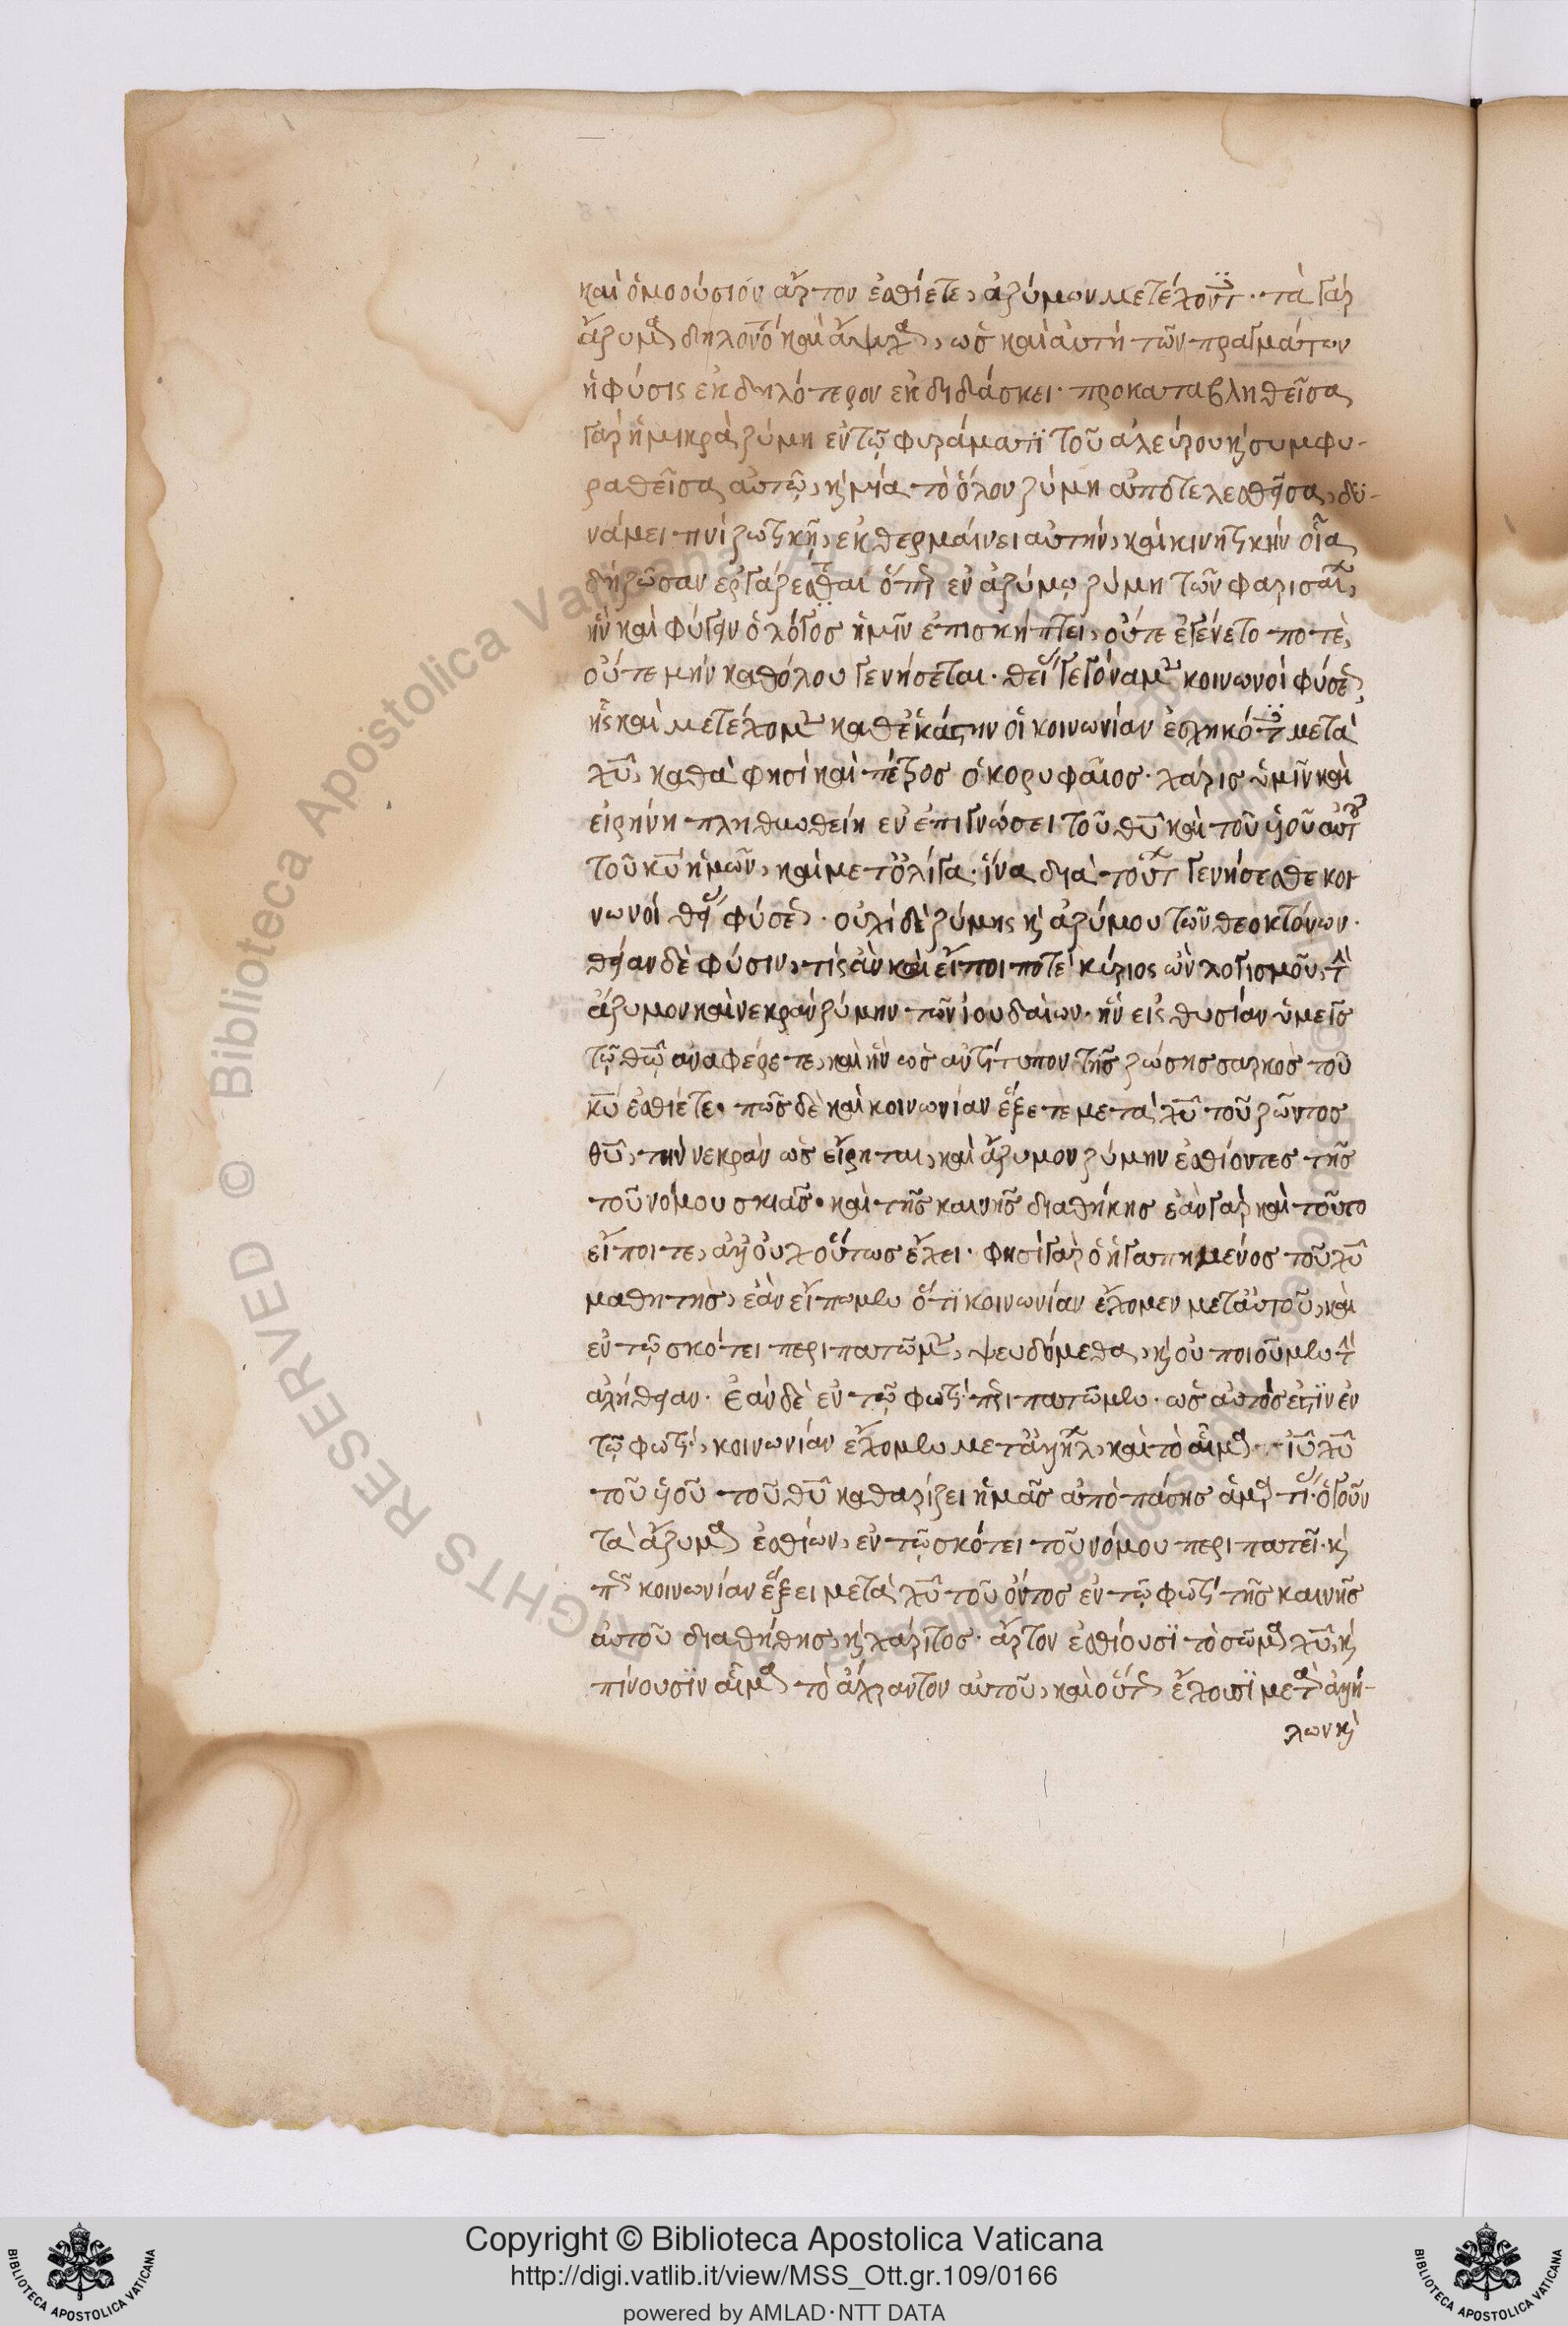 καὶ ὁμοούσιόν ἄρτον ἐσθίετε, ἀζύμων μετέχοντ. τὰ γὰρ
ἄζυμα δηλονό καὶ ἄψυχα, ὡς καὶ αὐτὴ τῶν πραγμάτων
ἡ φύσις ἐκδηλότερον ἐκδιδάσκει. προκαταβληθεῖσα
γὰρ ἡ μικρὰ ζύμη ἐν τῷ φυράματϊ τοῦ ἀλεύρου κ συμφυ-
ραθεῖσα αὐτῷ, κ μία τὸ ὅλον ζύμη ἀποτελεσθεῖσα, δυ-
νάμει πνι ζωτικῇ, ἐκθερμαίνει αὐτήν, καὶ κινητικὴν οἷα
δὴ ζῶσαν ἐργάζεσθαι ὅπερ ἐν ἀζύμῳ ζύμη τῶν φαρισαί,
ἣν καὶ φύγειν ὁ λόγος ἡμῖν ἐπισκήπτει, οὔτε ἐγένετο ποτὲ,
οὔτε μὴν καθόλου γενήσεται. θεί γεγόναμ κοινωνοὶ φύσε,
ἧς καὶ μετέχομ καθεκάστην οἱ κοινωνίαν ἐσχηκότ μετὰ
χυ, καθὰ φησὶ καὶ πέτρος ὁ κορυφαῖος. χάρις ὑμῖν καὶ
εἰρήνη πληθυνθείη ἐν ἐπιγνώσει τοῦ θυ καὶ τοῦ υἱοῦ αὐτ
τοῦ κυ ἡμῶν, καὶ μετ ὀλίγα. ἵνα διὰ τούτ γενήσεσθε κοι
νωνοὶ θεί φύσε. οὐχὶ δὲ ζύμης κ ἀζύμου τῶν θεοκτόνων.
θείαν δὲ φύσιν, τίς ἂν καὶ εἴποι ποτὲ κύριος ὢν λογισμοῦ, τ
ἄζυμον καὶ νεκρὰν ζύμην τῶν ἰουδαίων. ἣν εἰς θυσίαν ὑμεῖς
τῷ θῳ ἀναφέρετε, καὶ ἣν ὡς ἀντίτυπον τῆς ζώσης σαρκὸς τοῦ
κυ ἐσθίετε. πῶς δὲ καὶ κοινωνίαν ἕξετε μετὰ χυ τοῦ ζῶντος
θυ, τὴν νεκρὰν ὡς εἴρηται, καὶ ἄζυμον ζύμην ἐσθίοντες τῆς
τοῦ νόμου σκιᾶς. καὶ τῆς καινῆς διαθήκης ἐὰν γὰρ καὶ τοῦτο
εἴποιτε, ἀλλ οὐχ οὕτως ἔχει. φησὶ γὰρ ὁ ἠγαπημένος τοῦ χυ
μαθητής, ἐὰν εἴπωμεν ὅτϊ κοινωνίαν ἔχομεν μετ αὐτοῦ, καὶ
ἐν τῷ σκότει περιπατῶμ, ψευδόμεθα, κ οὐ ποιοῦμεν τ
ἀλήθειαν. Ἐὰν δὲ ἐν τῷ φωτί περιπατῶμεν. ὡς αὐτός ἐστϊν ἐν
τῷ φωτί, κοινωνίαν ἔχομεν μετ ἀλλήλ, καὶ τὸ αἷμα ιυ χυ
τοῦ υἱοῦ τοῦ θυ καθαρίζει ἡμᾶς ἀπὸ πάσης ἁμαρτί. ὁ γοῦν
τὰ ἄζυμα ἐσθίων, ἐν τῷ σκότει τοῦ νόμου περιπατεῖ. κ
πῶς κοινωνίαν ἕξει μετὰ χυ τοῦ ὄντος ἐν τῷ φωτί τῆς καινῆς
αὐτοῦ διαθήθης, κ χάριτος. ἄρτον ἐσθίουσϊ τὸ σῶμα χυ, κ
πίνουσϊν αἷμα τὸ ἄχραντον αὐτοῦ, καὶ οὗτοι ἔχουσϊ μετ ἀλλή-
λων κ
Copyright © Biblioteca Apostolica Vaticana
http://digi.vatlib.it/view/MSS_Ott.gr.109/0166
powered by AMLAD·NTT DATA